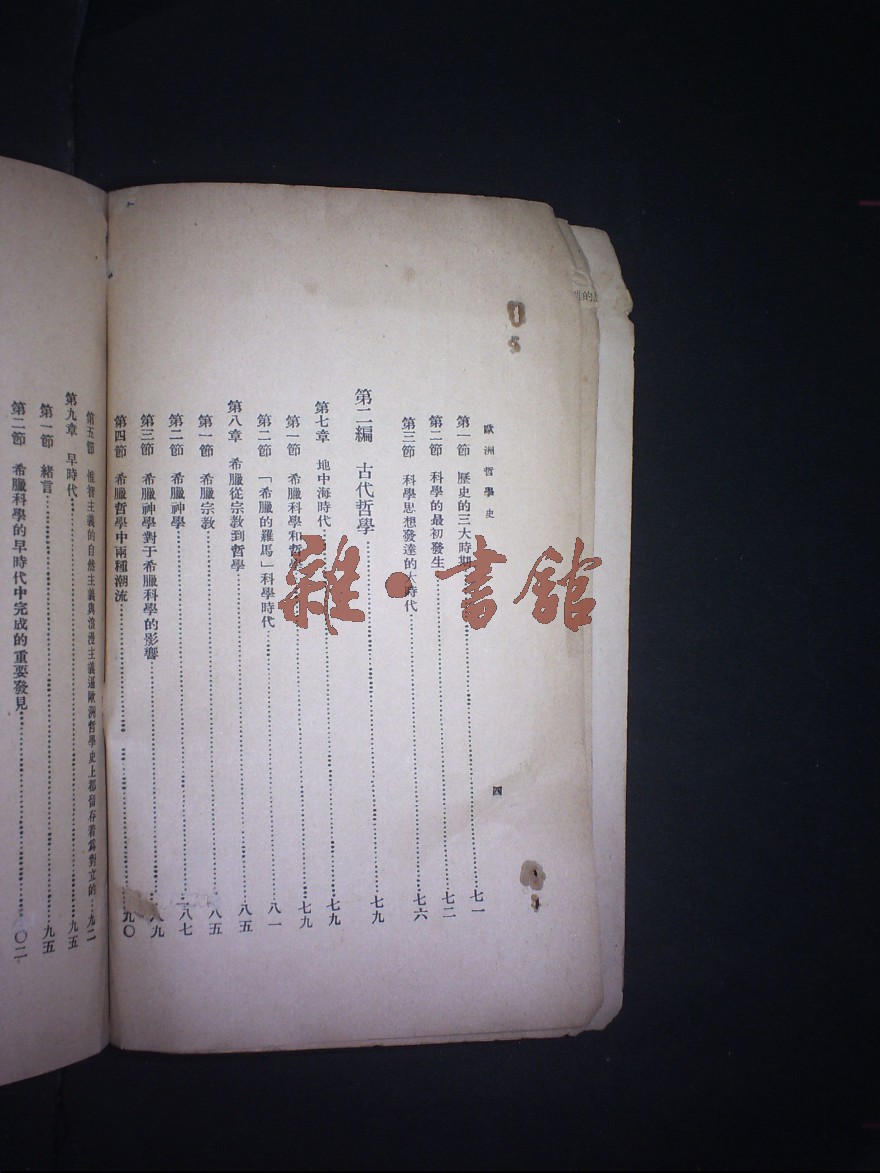 歐洲哲學史
四
第一節 歷史的三大時期……七一
第二節 科學的最初發生……七二
第三節 科學思想發達的大時代……七六
第二編 古代哲學……七九
第七章 地中海時代……七九
第一節 希臘科學和哲……七九
第二節 「希臘的羅馬」科學時代……八一
第八章 希臘從宗教到哲學……八五
第一節 希臘宗教……八五
第二節 希臘神學……八七
第三節 希臘神學對于希臘科學的影響……八九
第四節 希臘哲學中兩種潮流……九〇
第五節 惟智主義的自然主義與浪漫主義逼歐洲哲學史上都留存着為對立的…九二
第九章 早時代……九五
第一節 緒言……九五
第二節 希臘科學的早時代中完成的重要發見……〇二
雜·書館
的